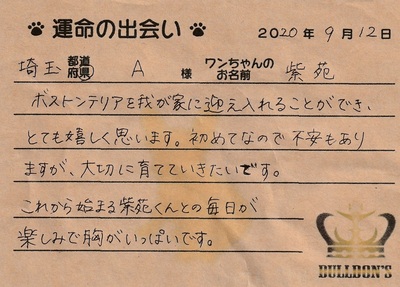 運命の出会い 2020年9月12日
埼玉 都道府県 A 様 ワンちゃんのお名前 紫苑
ボストンテリアを我が家に迎え入れることができ、
とても嬉しく思います。初めてなので不安もあり
ますが、大切に育てていきたいです。
これから始まる紫苑くんとの毎日が
楽しみで胸がいっぱいです。
BULLDON'S